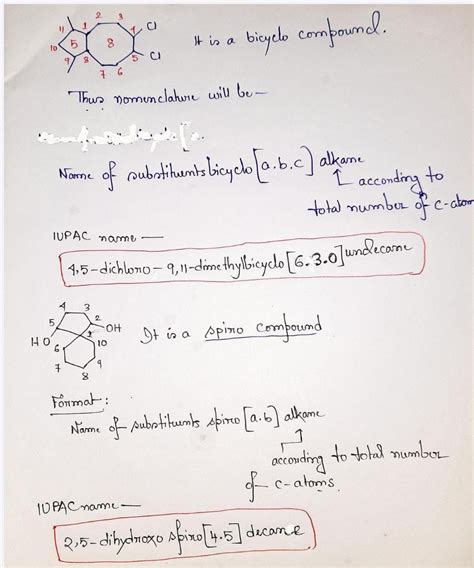 11 1 2 3 4 Cl
10 5 8 It is a bicyclo compound.
9 8 7 6 5 Cl
Thus nomenclature will be —
Name of substituents bicyclo [a.b.c] alkane
according to
total number of c-atom
IUPAC name —
4,5-dichloro-9,11-dimethylbicyclo[6.3.0]undecane
4 3
5 2 OH
HO 1 It is a spiro compound
6 10
7 9
8
Format:
Name of substituents spiro [a.b] alkane
according to total number
of c-atoms.
IUPAC name —
2,5-dihydroxo spiro [4.5] decane